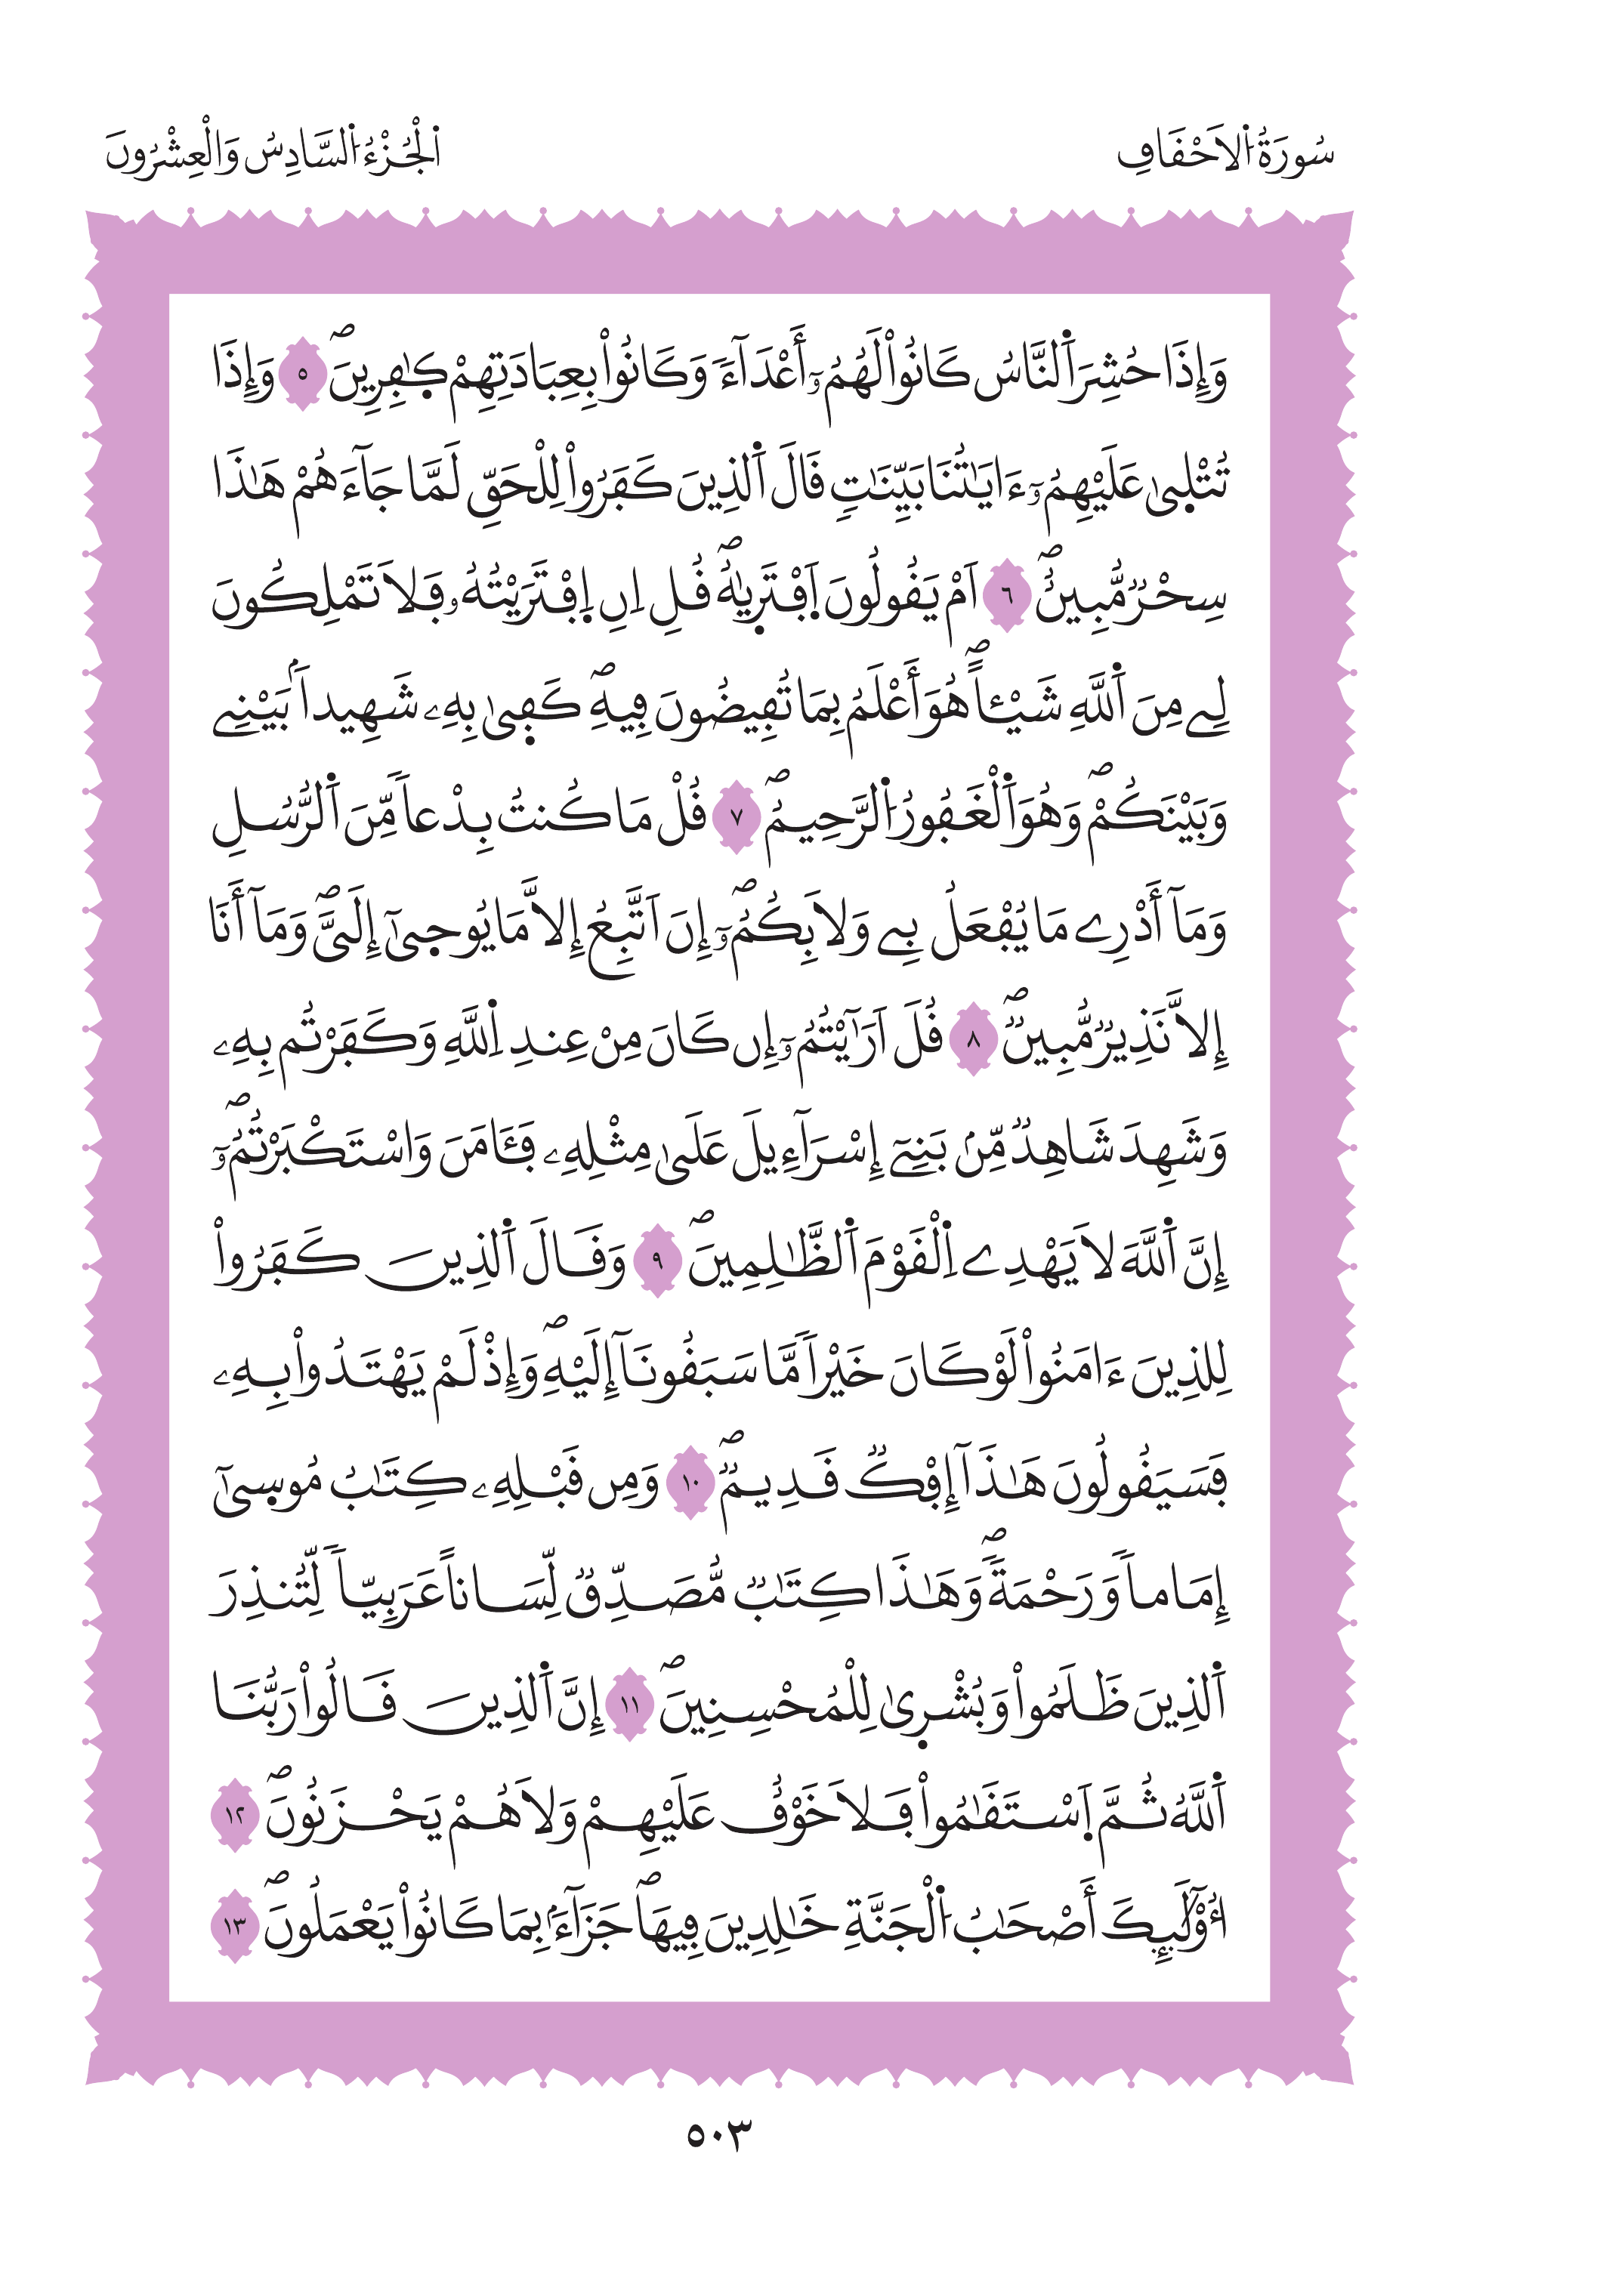 سُورَةُ الَاحْقَافِ
الْجُزْءُ السَّادِسُ وَالْعِشْرُونَ
وَإِذَا حُشِرَ اَ۬لنَّاسُ كَانُواْ لَهُمُۥٓ أَعْدَآءٗ وَكَانُواْ بِعِبَادَتِهِمْ كٰ۪فِرِينَۖ ٥ وَإِذَا
تُتْل۪ىٰ عَلَيْهِمُۥٓ ءَايَٰتُنَا بَيِّنَٰتٖ قَالَ اَ۬لذِينَ كَفَرُواْ لِلْحَقِّ لَمَّا جَآءَهُمْ هَٰذَا
سِحْرٞ مُّبِينٌۖ ٦ اَمْ يَقُولُونَ اَ۪فْتَر۪يٰهُۖ قُلِ اِنِ اِ۪فْتَرَيْتُهُۥ فَلَا تَمْلِكُونَ
لِے مِنَ اَ۬للَّهِ شَيْـٔاًۖ هُوَ أَعْلَمُ بِمَا تُفِيضُونَ فِيهِۖ كَف۪ىٰ بِهِۦ شَهِيداَۢ بَيْنِے
وَبَيْنَكُمْۖ وَهُوَ اَ۬لْغَفُورُ اُ۬لرَّحِيمُۖ ٧ قُلْ مَا كُنتُ بِدْعاٗ مِّنَ اَ۬لرُّسُلِ
وَمَآ أَدْرِے مَا يُفْعَلُ بِے وَلَا بِكُمُۥٓۖ إِنَ اَتَّبِعُ إِلَّا مَا يُوح۪ىٰٓ إِلَيَّۖ وَمَآ أَنَا
إِلَّا نَذِيرٞ مُّبِينٞۖ ٨ قُلَ اَرَٰٓيْتُمُۥٓ إِن كَانَ مِنْ عِندِ اِ۬للَّهِ وَكَفَرْتُم بِهِۦ
وَشَهِدَ شَاهِدٞ مِّنۢ بَنِےٓ إِسْرَآءِيلَ عَلَىٰ مِثْلِهِۦ فَـَٔامَنَ وَاسْتَكْبَرْتُمُۥٓۖ
إِنَّ اَ۬للَّهَ لَا يَهْدِے اِ۬لْقَوْمَ اَ۬لظَّٰلِمِينَۖ ٩ وَقَالَ اَ۬لذِينَ كَفَرُواْ
لِلذِينَ ءَامَنُواْ لَوْ كَانَ خَيْراٗ مَّا سَبَقُونَآ إِلَيْهِۖ وَإِذْ لَمْ يَهْتَدُواْ بِهِۦ
فَسَيَقُولُونَ هَٰذَآ إِفْكٞ قَدِيمٞۖ ١٠ وَمِن قَبْلِهِۦ كِتَٰبُ مُوس۪ىٰٓ
إِمَاماٗ وَرَحْمَةٗۖ وَهَٰذَا كِتَٰبٞ مُّصَدِّقٞ لِّسَاناً عَرَبِيّاٗ لِّتُنذِرَ
اَ۬لذِينَ ظَلَمُواْ وَبُشْر۪ىٰ لِلْمُحْسِنِينَۖ ١١ إِنَّ اَ۬لذِينَ قَالُواْ رَبُّنَا
اَ۬للَّهُ ثُمَّ اَ۪سْتَقَٰمُواْ فَلَا خَوْفٌ عَلَيْهِمْ وَلَا هُمْ يَحْزَنُونَۖ ١٢
أُوْلَٰٓئِكَ أَصْحَٰبُ اُ۬لْجَنَّةِ خَٰلِدِينَ فِيهَاۖ جَزَآءَۢ بِمَا كَانُواْ يَعْمَلُونَۖ ١٣
٥٠٣